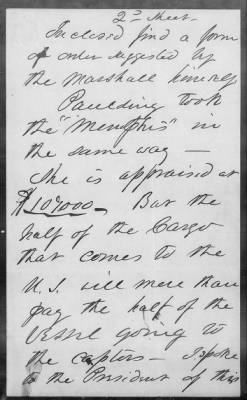 2d Sheet.
Inclosed find a form
of order suggested by
the Marshall himself
Paulding took
the "Memphis" in
the same way —
She is appraised at
$107000 — But the
half of the Cargo
that comes to the
U.S. will more than
pay the half of the
Vessel going to
the captors — I spoke
to the President of this